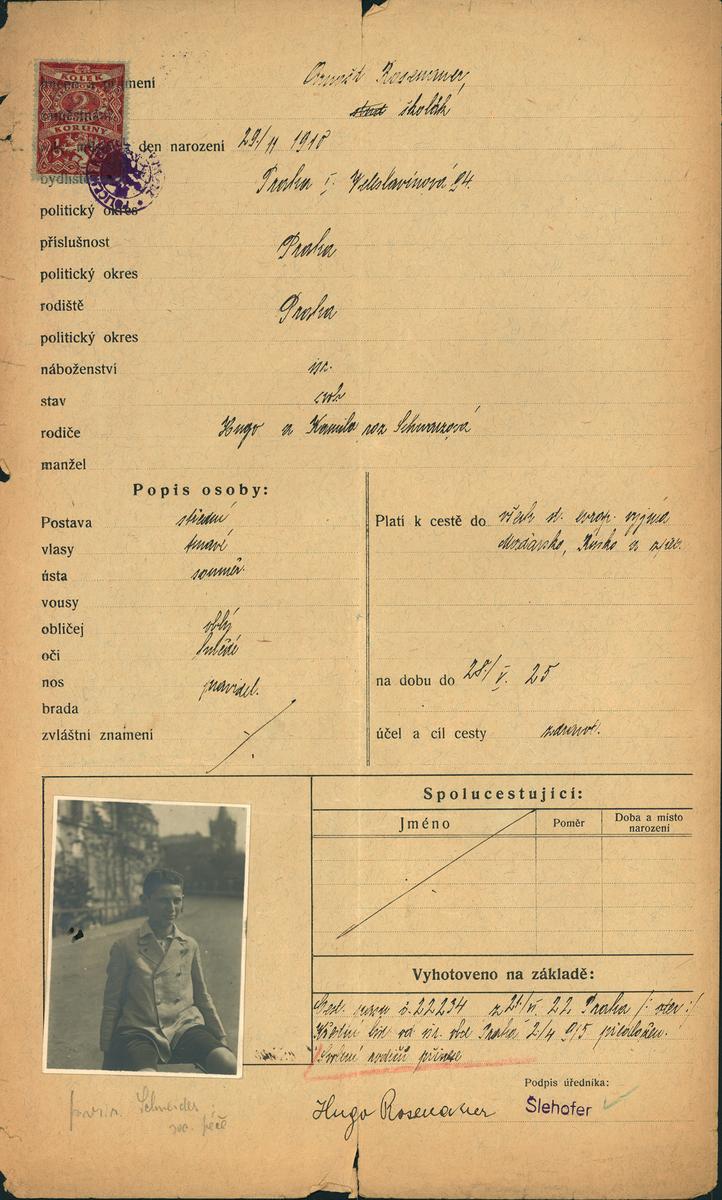 KOLEK
2
KORUNY
mení
Rosenauer
školák
den narození 29/11 1910
bydliště Praha I. Veleslavínová
politický okres
příslušnost Praha
politický okres
rodiště Praha
politický okres
náboženství isr.
stav svob
rodiče Hugo a Kamila roz Schwarzová
manžel
Popis osoby:
Postava střední
vlasy tmavé
ústa souměr.
vousy
obličej oblý
oči hnědé
nos pravidel.
brada
zvláštní znamení
Platí k cestě do všech st. evrop. vyjma
Maďarsko, Rusko a
na dobu do 28/V. 25
účel a cíl cesty zdravot.
Spolucestující:
Jméno
Poměr
Doba a místo
narození
Vyhotoveno na základě:
č. 22234 z 21/VI 22 Praha
Praha 2/4 915
Svolení rodičů
Hugo Rosenauer
Podpis úředníka:
Šlehofer
Schneider
soc. péče